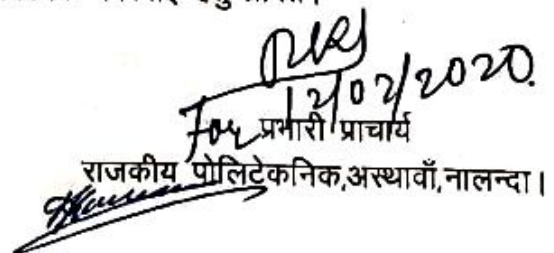 12/02/2020
For प्रभारी प्राचार्य
राजकीय पोलिटेकनिक,अस्थावाँ,नालन्दा।